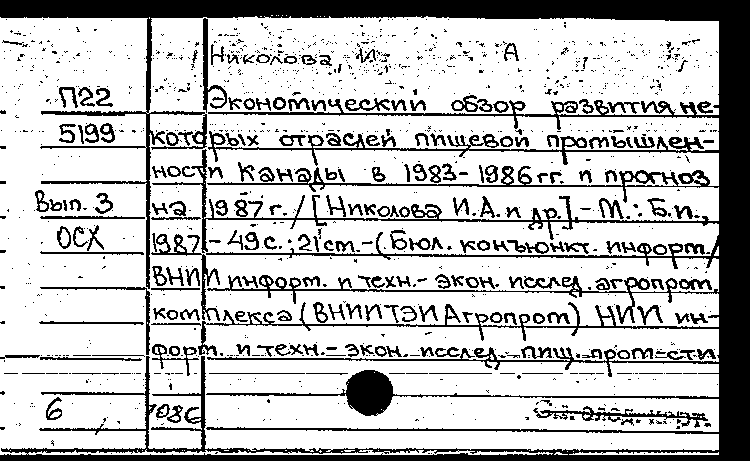 Николова И. А
П22 Экономический обзор развития не-
5199 которых отраслей пищевой промышлен-
ности Канады в 1983-1986 гг. и прогноз
Вып. 3 на 1987 г. / [Николова И.А. и др.]. - М.: Б.и.,
ОСХ 1987 - 49 с.; 21 см. - (Бюл. конъюнкт. информ. /
ВНИИ информ. и техн.- экон. исслед. агропром.
комплекса (ВНИИТЭИАгропром) НИИ ин-
форм. и техн.- экон. исслед. пищ. пром-сти
6